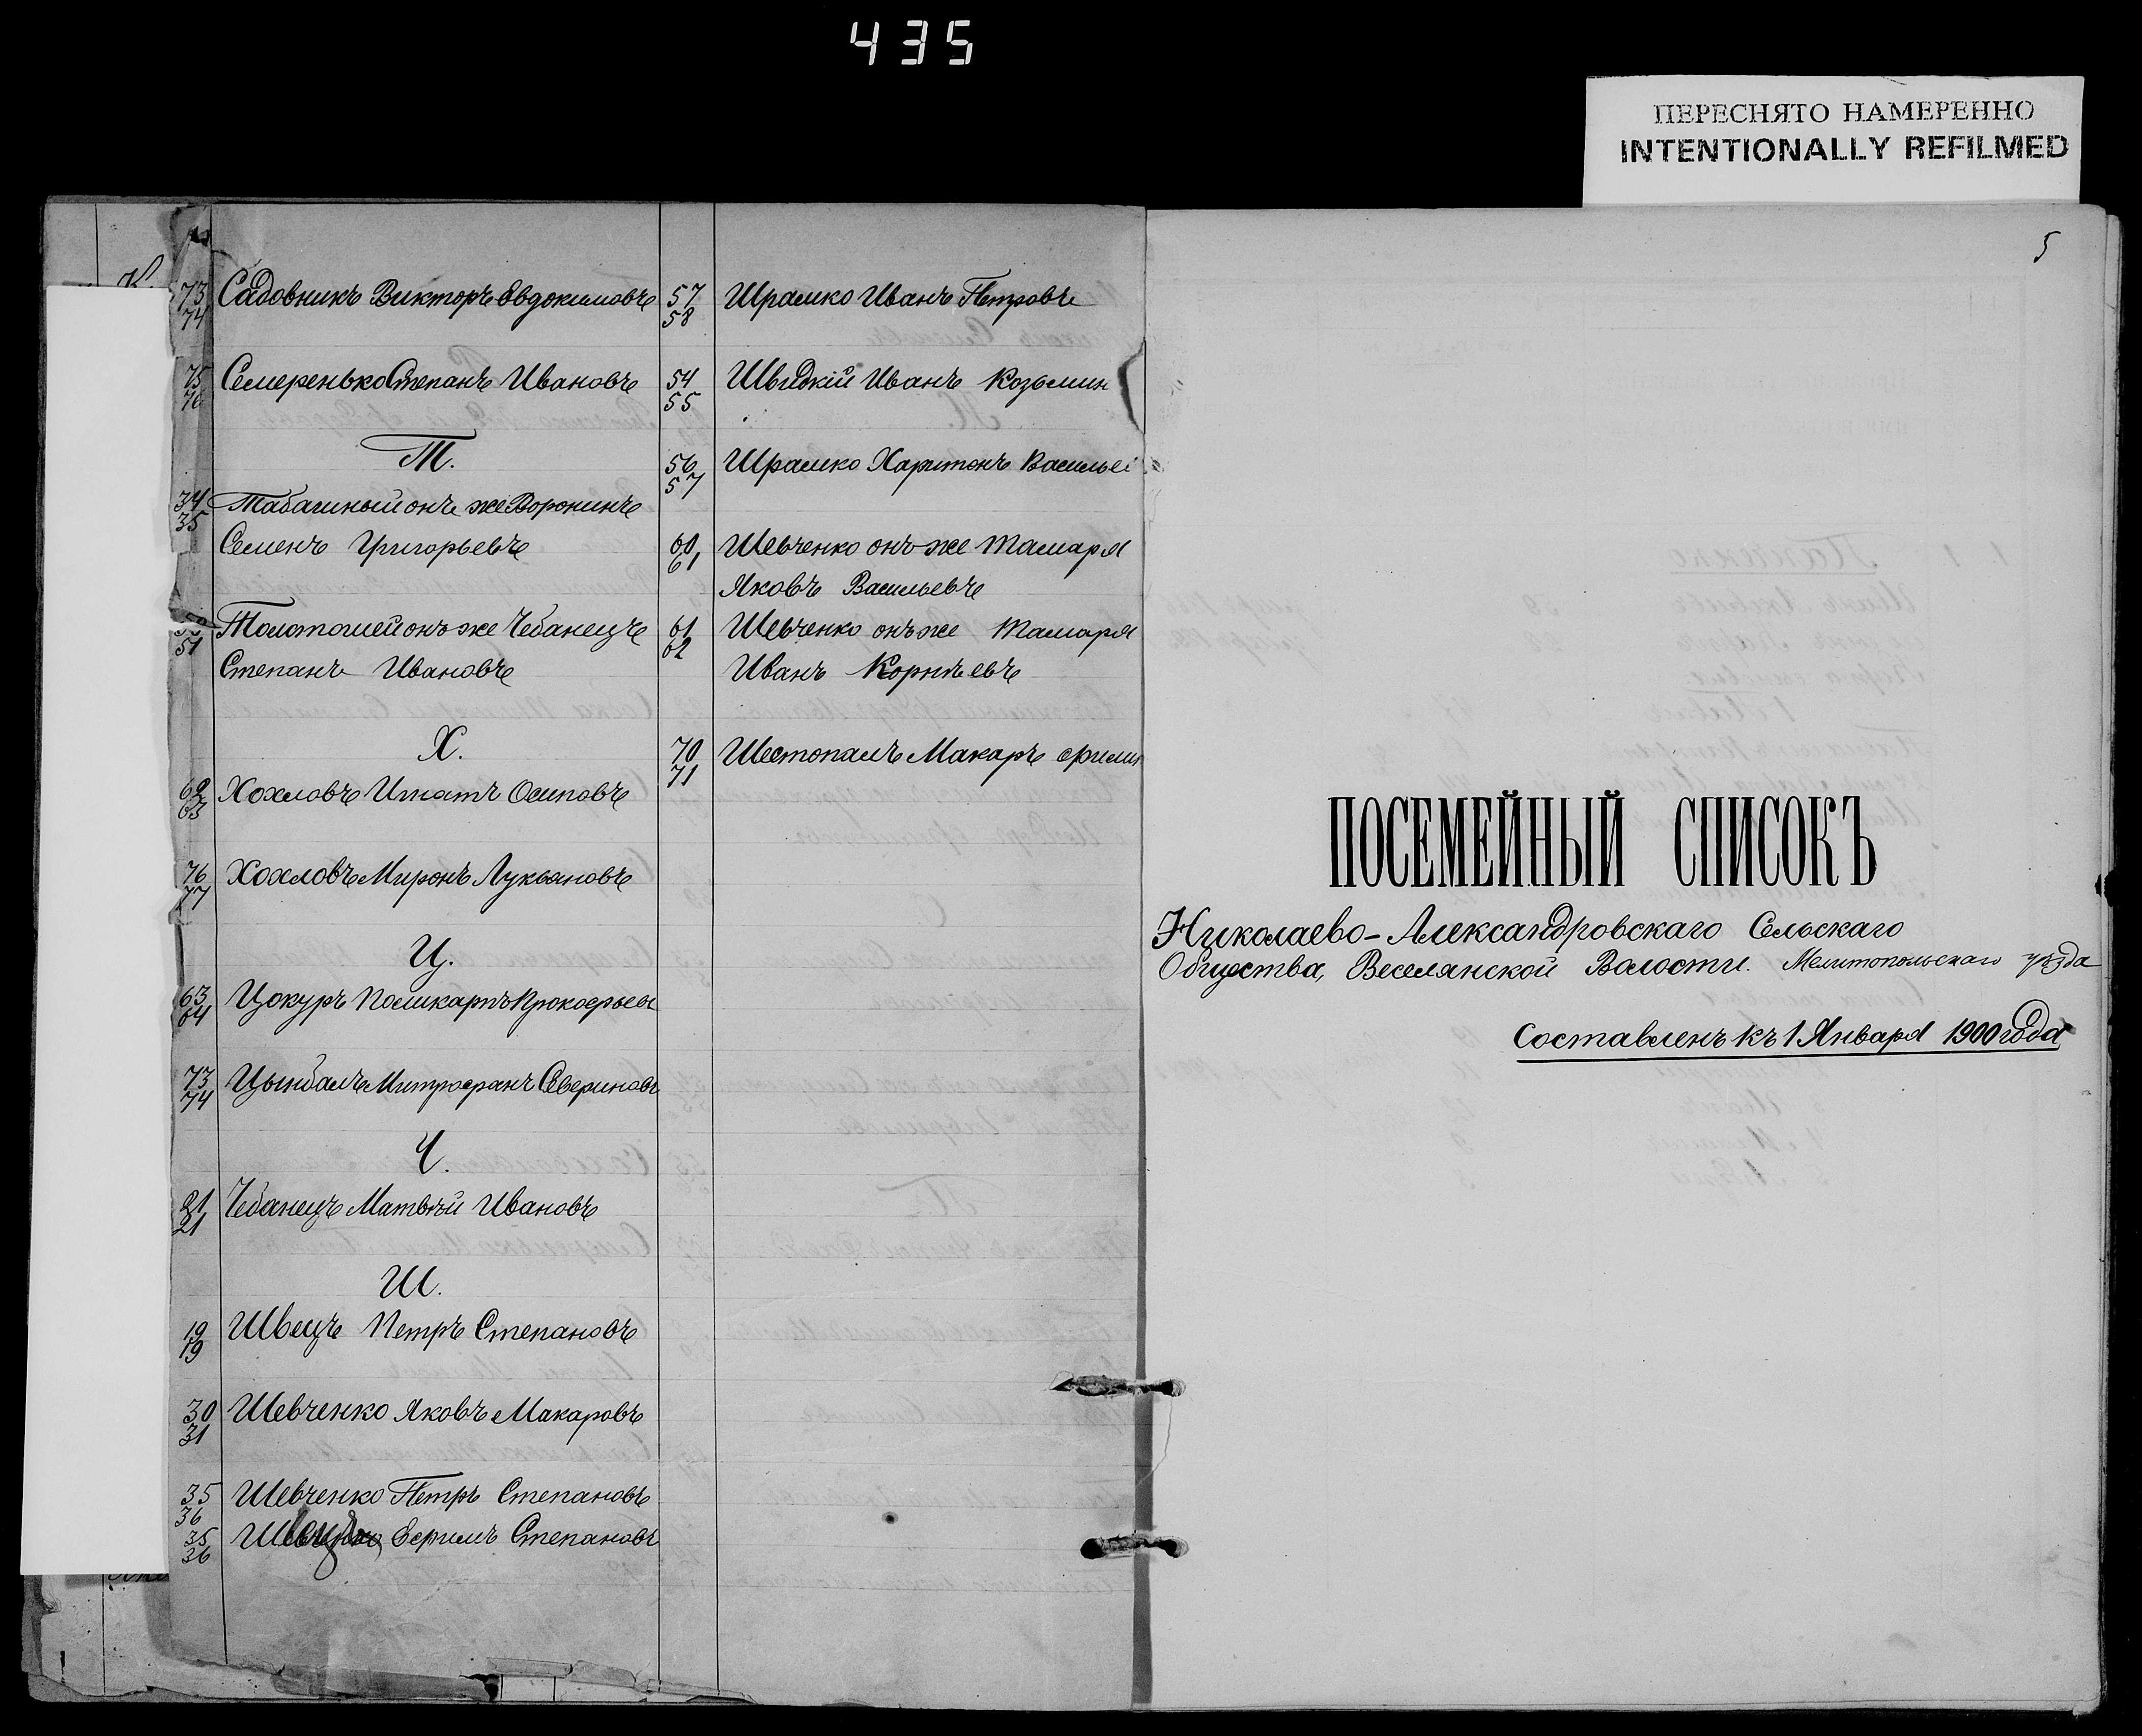 435
ПЕРЕСНЯТО НАМЕРЕННО
INTENTIONALLY REFILMED
73 Садовникъ Викторъ Евдокимовъ
74
75 Семеренько Степанъ Ивановъ
76
Т.
34 Табашный онъ же Воронинъ
35
Семенъ Григорьевъ
50 Толстошей онъ же Чебанецъ
51
Степанъ Ивановъ
Х.
62 Хохловъ Игнатъ Осиповъ
63
76 Хохловъ Миронъ Лукьяновъ
77
Ц.
63 Цокуръ Поликарпъ Прокофьевъ
64
73 Цымбалъ Митрофанъ Севериновъ
74
Ч.
21 Чебанецъ Матвѣй Ивановъ
21
Ш.
19 Швецъ Петръ Степановъ
19
30 Шевченко Яковъ Макаровъ
31
35 Шевченко Петръ Степановъ
36
35 Ефимъ Степановъ
36
57 Шрамко Иванъ Петровъ
58
54 Швидкій Иванъ Козьмин
55
56 Шрамко Харитонъ Василье
57
60 Шевченко онъ же Тамаря
61
Яковъ Васильевъ
61 Шевченко онъ же Тамаря
62
Иванъ Корнѣевъ
70 Шестопалъ Макаръ
71
5
ПОСЕМЕЙНЫЙ СПИСОКЪ
Николаево-Александровскаго Сельскаго
Общества, Веселянской Волости. Мелитопольскаго уѣзда
Составленъ къ 1 Января 1900 года